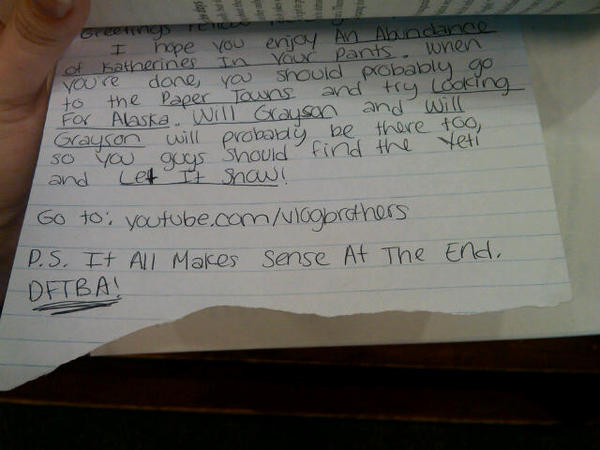 Greetings
I hope you enjoy An Abundance
of Katherines In Your Pants. When
you're done, you should probably go
to the Paper Towns and try Looking
For Alaska. Will Grayson and Will
Grayson will probably be there too,
so you guys should find the Yeti
and Let It Snow!
Go to: youtube.com/vlogbrothers
P.S. It All Makes Sense At The End.
DFTBA!